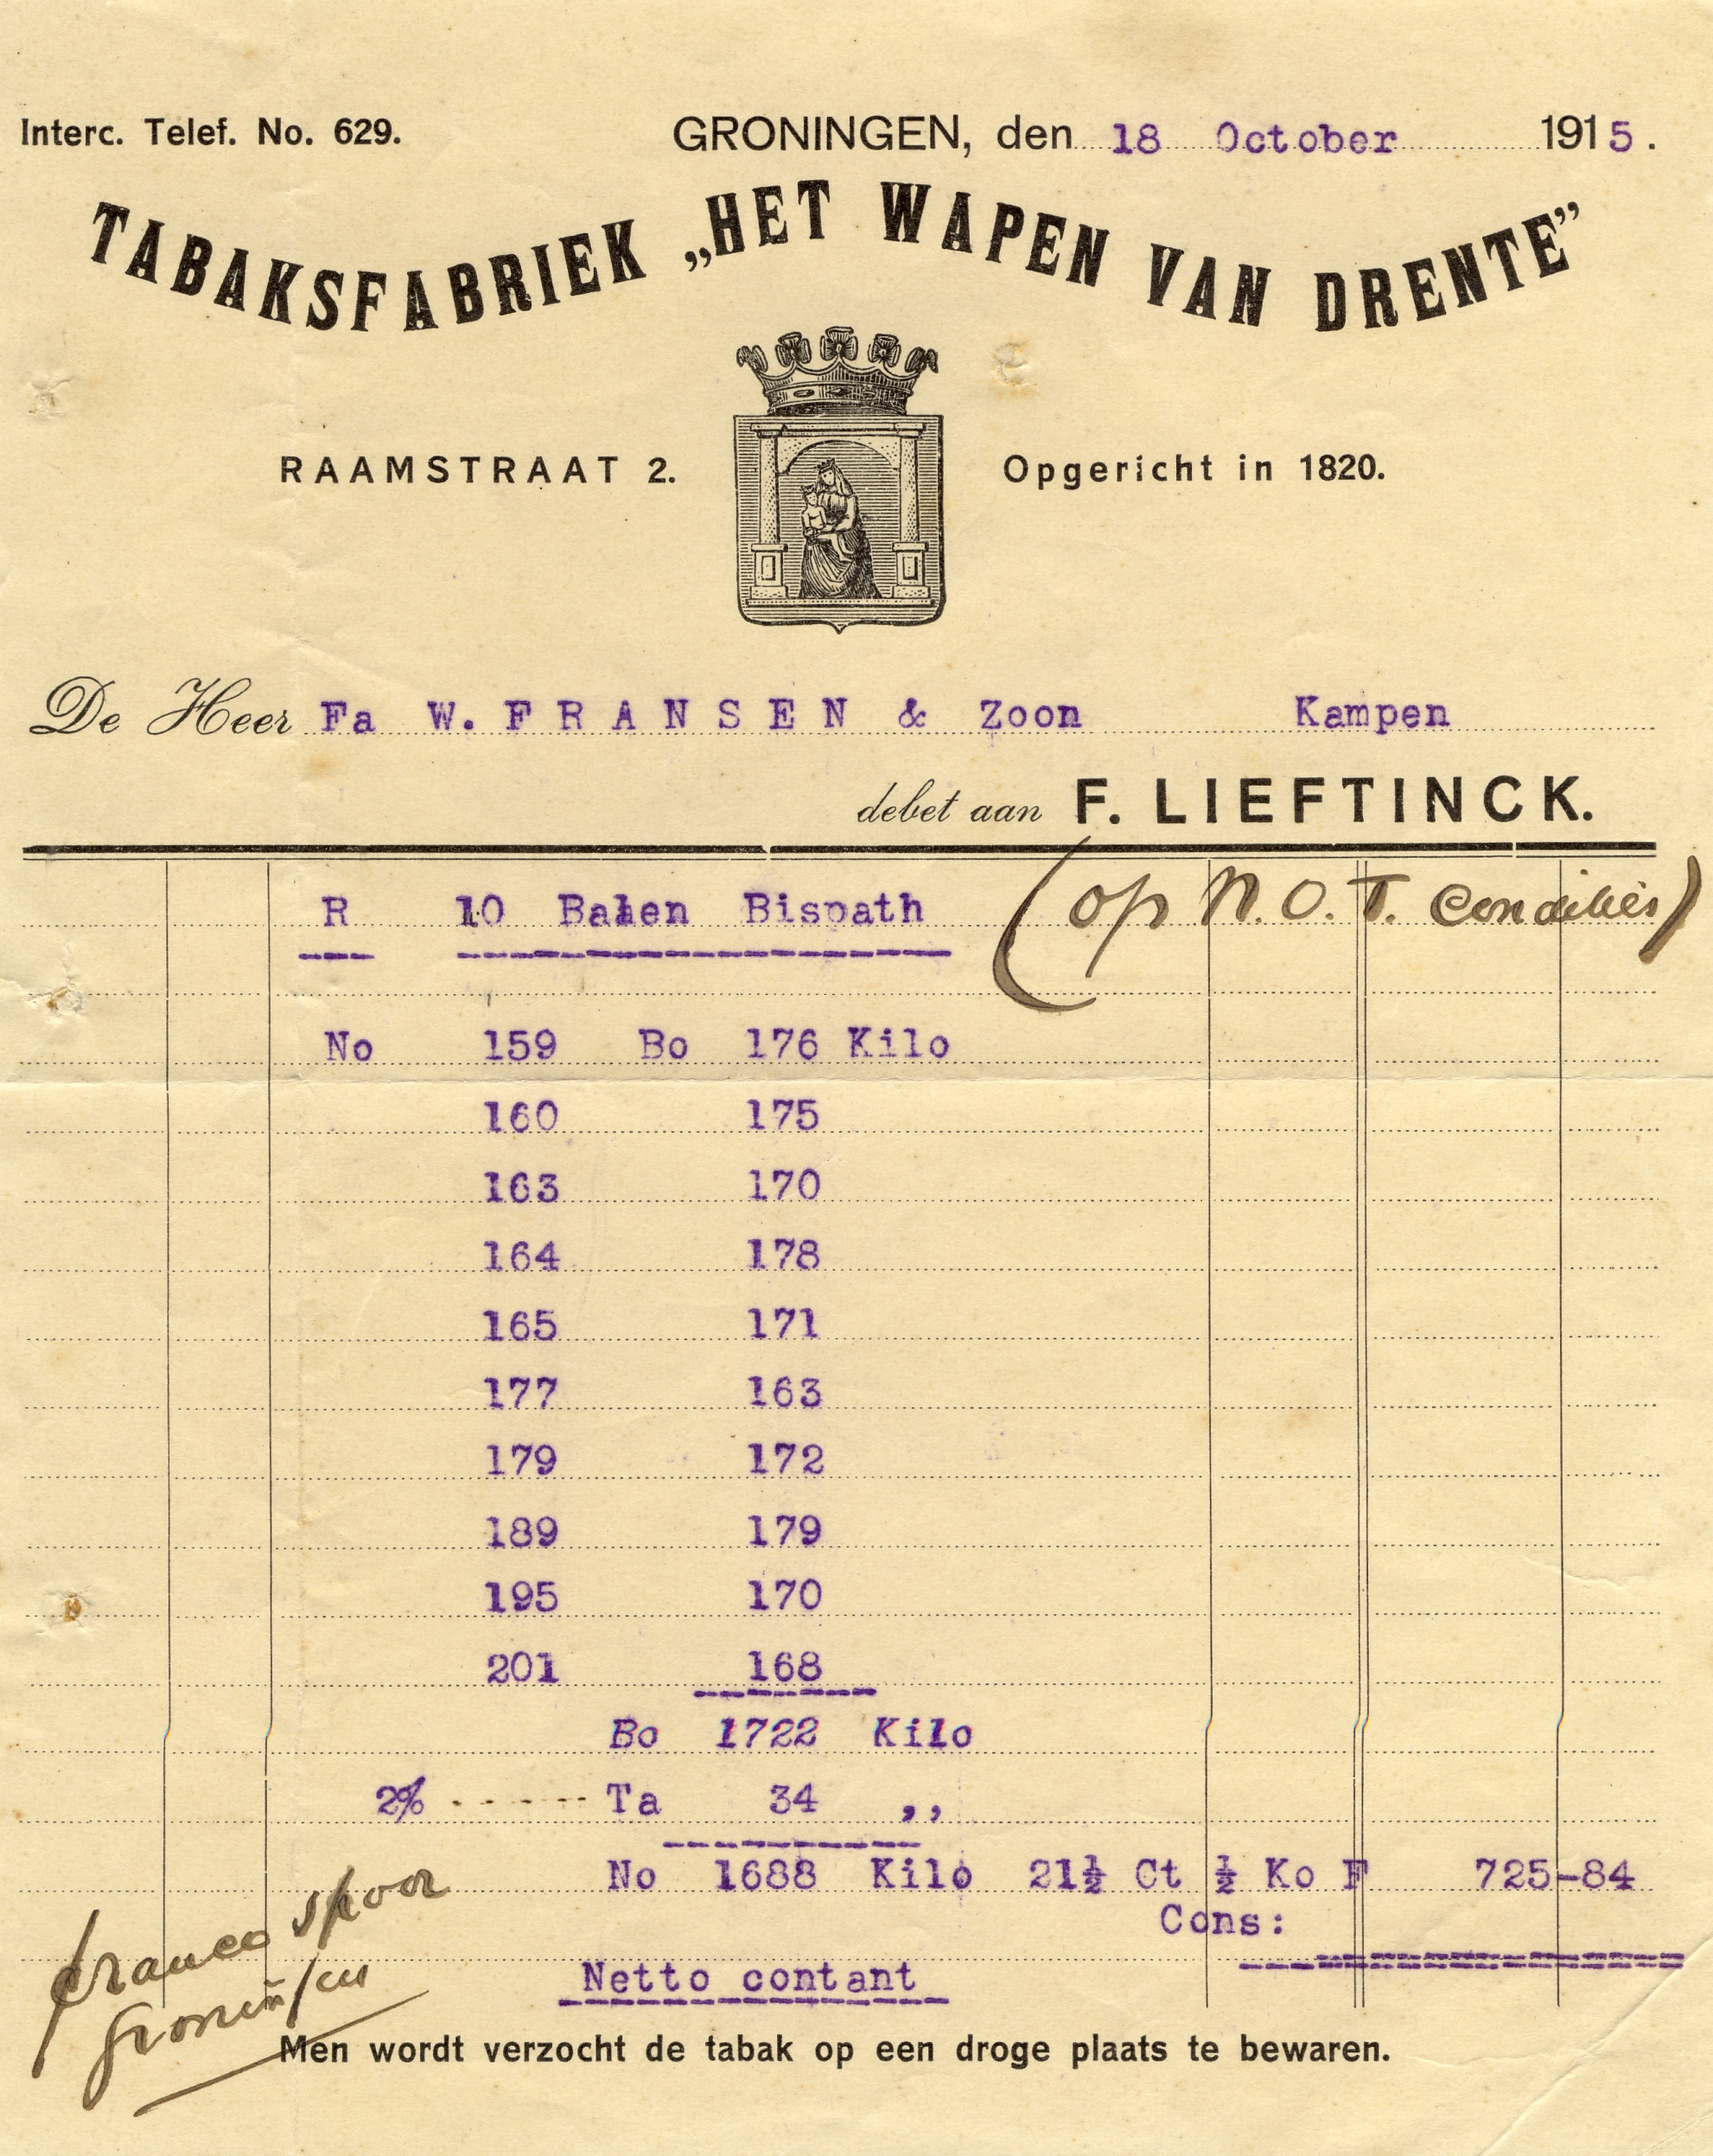 Interc. Telef. No. 629.
GRONINGEN, den 18 October 1915.
TABAKSFABRIEK „HET WAPEN VAN DRENTE”
RAAMSTRAAT 2.
Opgericht in 1820.
De Heer Fa W. FRANSEN & Zoon Kampen
debet aan F. LIEFTINCK.
R 10 Balen Bispath (op N.O.T. condities)
No 159 Bo 176 Kilo
160 175
163 170
164 178
165 171
177 163
179 172
189 179
195 170
201 168
Bo 1722 Kilo
2% ------ Ta 34 ,,
No 1688 Kilo 21½ Ct ½ Ko F 725-84
Cons:
franco spoor
Groningen
Netto contant
Men wordt verzocht de tabak op een droge plaats te bewaren.